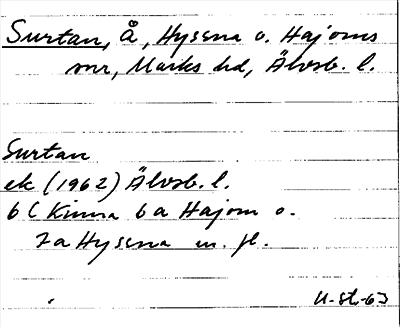 Surtan, å, Hyssna o. Hajoms
snr, Marks hd, Älvsb. l.
Surtan
ek (1962) Älvsb. l.
6 C Kinna 6 a Hajom o.
7 a Hyssna m. fl.
U-st-63